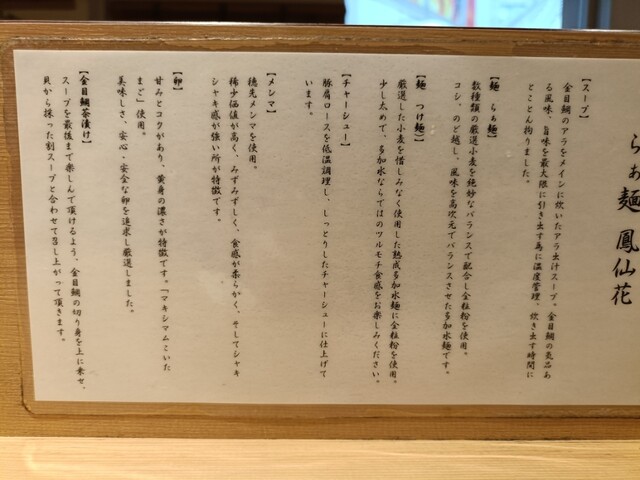 らぁ麺 鳳仙花
【スープ】
金目鯛のアラをメインに炊いたアラ出汁スープ。金目鯛の気品あ
る風味、旨味を最大限に引き出す為に温度管理、炊き出す時間に
とことん拘りました。
【麺 らぁ麺】
数種類の厳選小麦を絶妙なバランスで配合し全粒粉を使用。
コシ、のど越し、風味を高次元でバランスさせた多加水麺です。
【麺 つけ麺】
厳選した小麦を惜しみなく使用した熟成多加水麺に全粒粉を使用。
少し太めで、多加水ならではのツルモチ食感をお楽しみください。
【チャーシュー】
豚肩ロースを低温調理し、しっとりしたチャーシューに仕上げて
います。
【メンマ】
穂先メンマを使用。
稀少価値が高く、みずみずしく、食感が柔らかく、そしてシャキ
シャキ感が強い所が特徴です。
【卵】
甘みとコクがあり、黄身の濃さが特徴です。「マキシマムこいた
まご」使用。
美味しさ、安心・安全な卵を追求し厳選しました。
【金目鯛茶漬け】
スープを最後まで楽しんで頂けるよう、金目鯛の切り身を上に乗せ、
貝から採った割スープと合わせて召し上がって頂きます。